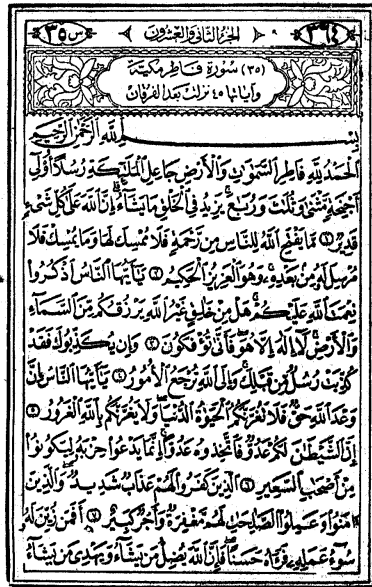 ٣٦٤ الجزء الثانى والعشرون س ٣٥
(٣٥) سورة فاطر مكية
وآياتها ٤٥ نزلت بعد الفرقان
بِسْمِ ٱللَّهِ ٱلرَّحْمَٰنِ ٱلرَّحِيمِ
ٱلْحَمْدُ لِلَّهِ فَاطِرِ ٱلسَّمَٰوَٰتِ وَٱلْأَرْضِ جَاعِلِ ٱلْمَلَٰٓئِكَةِ رُسُلًا أُو۟لِىٓ
أَجْنِحَةٍ مَّثْنَىٰ وَثُلَٰثَ وَرُبَٰعَ يَزِيدُ فِى ٱلْخَلْقِ مَا يَشَآءُ إِنَّ ٱللَّهَ عَلَىٰ كُلِّ شَىْءٍ
قَدِيرٌ ١ مَّا يَفْتَحِ ٱللَّهُ لِلنَّاسِ مِن رَّحْمَةٍ فَلَا مُمْسِكَ لَهَا وَمَا يُمْسِكْ فَلَا
مُرْسِلَ لَهُۥ مِنۢ بَعْدِهِۦ وَهُوَ ٱلْعَزِيزُ ٱلْحَكِيمُ ٢ يَٰٓأَيُّهَا ٱلنَّاسُ ٱذْكُرُوا۟
نِعْمَتَ ٱللَّهِ عَلَيْكُمْ هَلْ مِنْ خَٰلِقٍ غَيْرُ ٱللَّهِ يَرْزُقُكُم مِّنَ ٱلسَّمَآءِ
وَٱلْأَرْضِ لَآ إِلَٰهَ إِلَّا هُوَ فَأَنَّىٰ تُؤْفَكُونَ ٣ وَإِن يُكَذِّبُوكَ فَقَدْ
كُذِّبَتْ رُسُلٌ مِّن قَبْلِكَ وَإِلَى ٱللَّهِ تُرْجَعُ ٱلْأُمُورُ ٤ يَٰٓأَيُّهَا ٱلنَّاسُ إِنَّ
وَعْدَ ٱللَّهِ حَقٌّ فَلَا تَغُرَّنَّكُمُ ٱلْحَيَوٰةُ ٱلدُّنْيَا وَلَا يَغُرَّنَّكُم بِٱللَّهِ ٱلْغَرُورُ ٥
إِنَّ ٱلشَّيْطَٰنَ لَكُمْ عَدُوٌّ فَٱتَّخِذُوهُ عَدُوًّا إِنَّمَا يَدْعُوا۟ حِزْبَهُۥ لِيَكُونُوا۟
مِنْ أَصْحَٰبِ ٱلسَّعِيرِ ٦ ٱلَّذِينَ كَفَرُوا۟ لَهُمْ عَذَابٌ شَدِيدٌ وَٱلَّذِينَ
ءَامَنُوا۟ وَعَمِلُوا۟ ٱلصَّٰلِحَٰتِ لَهُم مَّغْفِرَةٌ وَأَجْرٌ كَبِيرٌ ٧ أَفَمَن زُيِّنَ لَهُۥ
سُوٓءُ عَمَلِهِۦ فَرَءَاهُ حَسَنًا فَإِنَّ ٱللَّهَ يُضِلُّ مَن يَشَآءُ وَيَهْدِى مَن يَشَآءُ